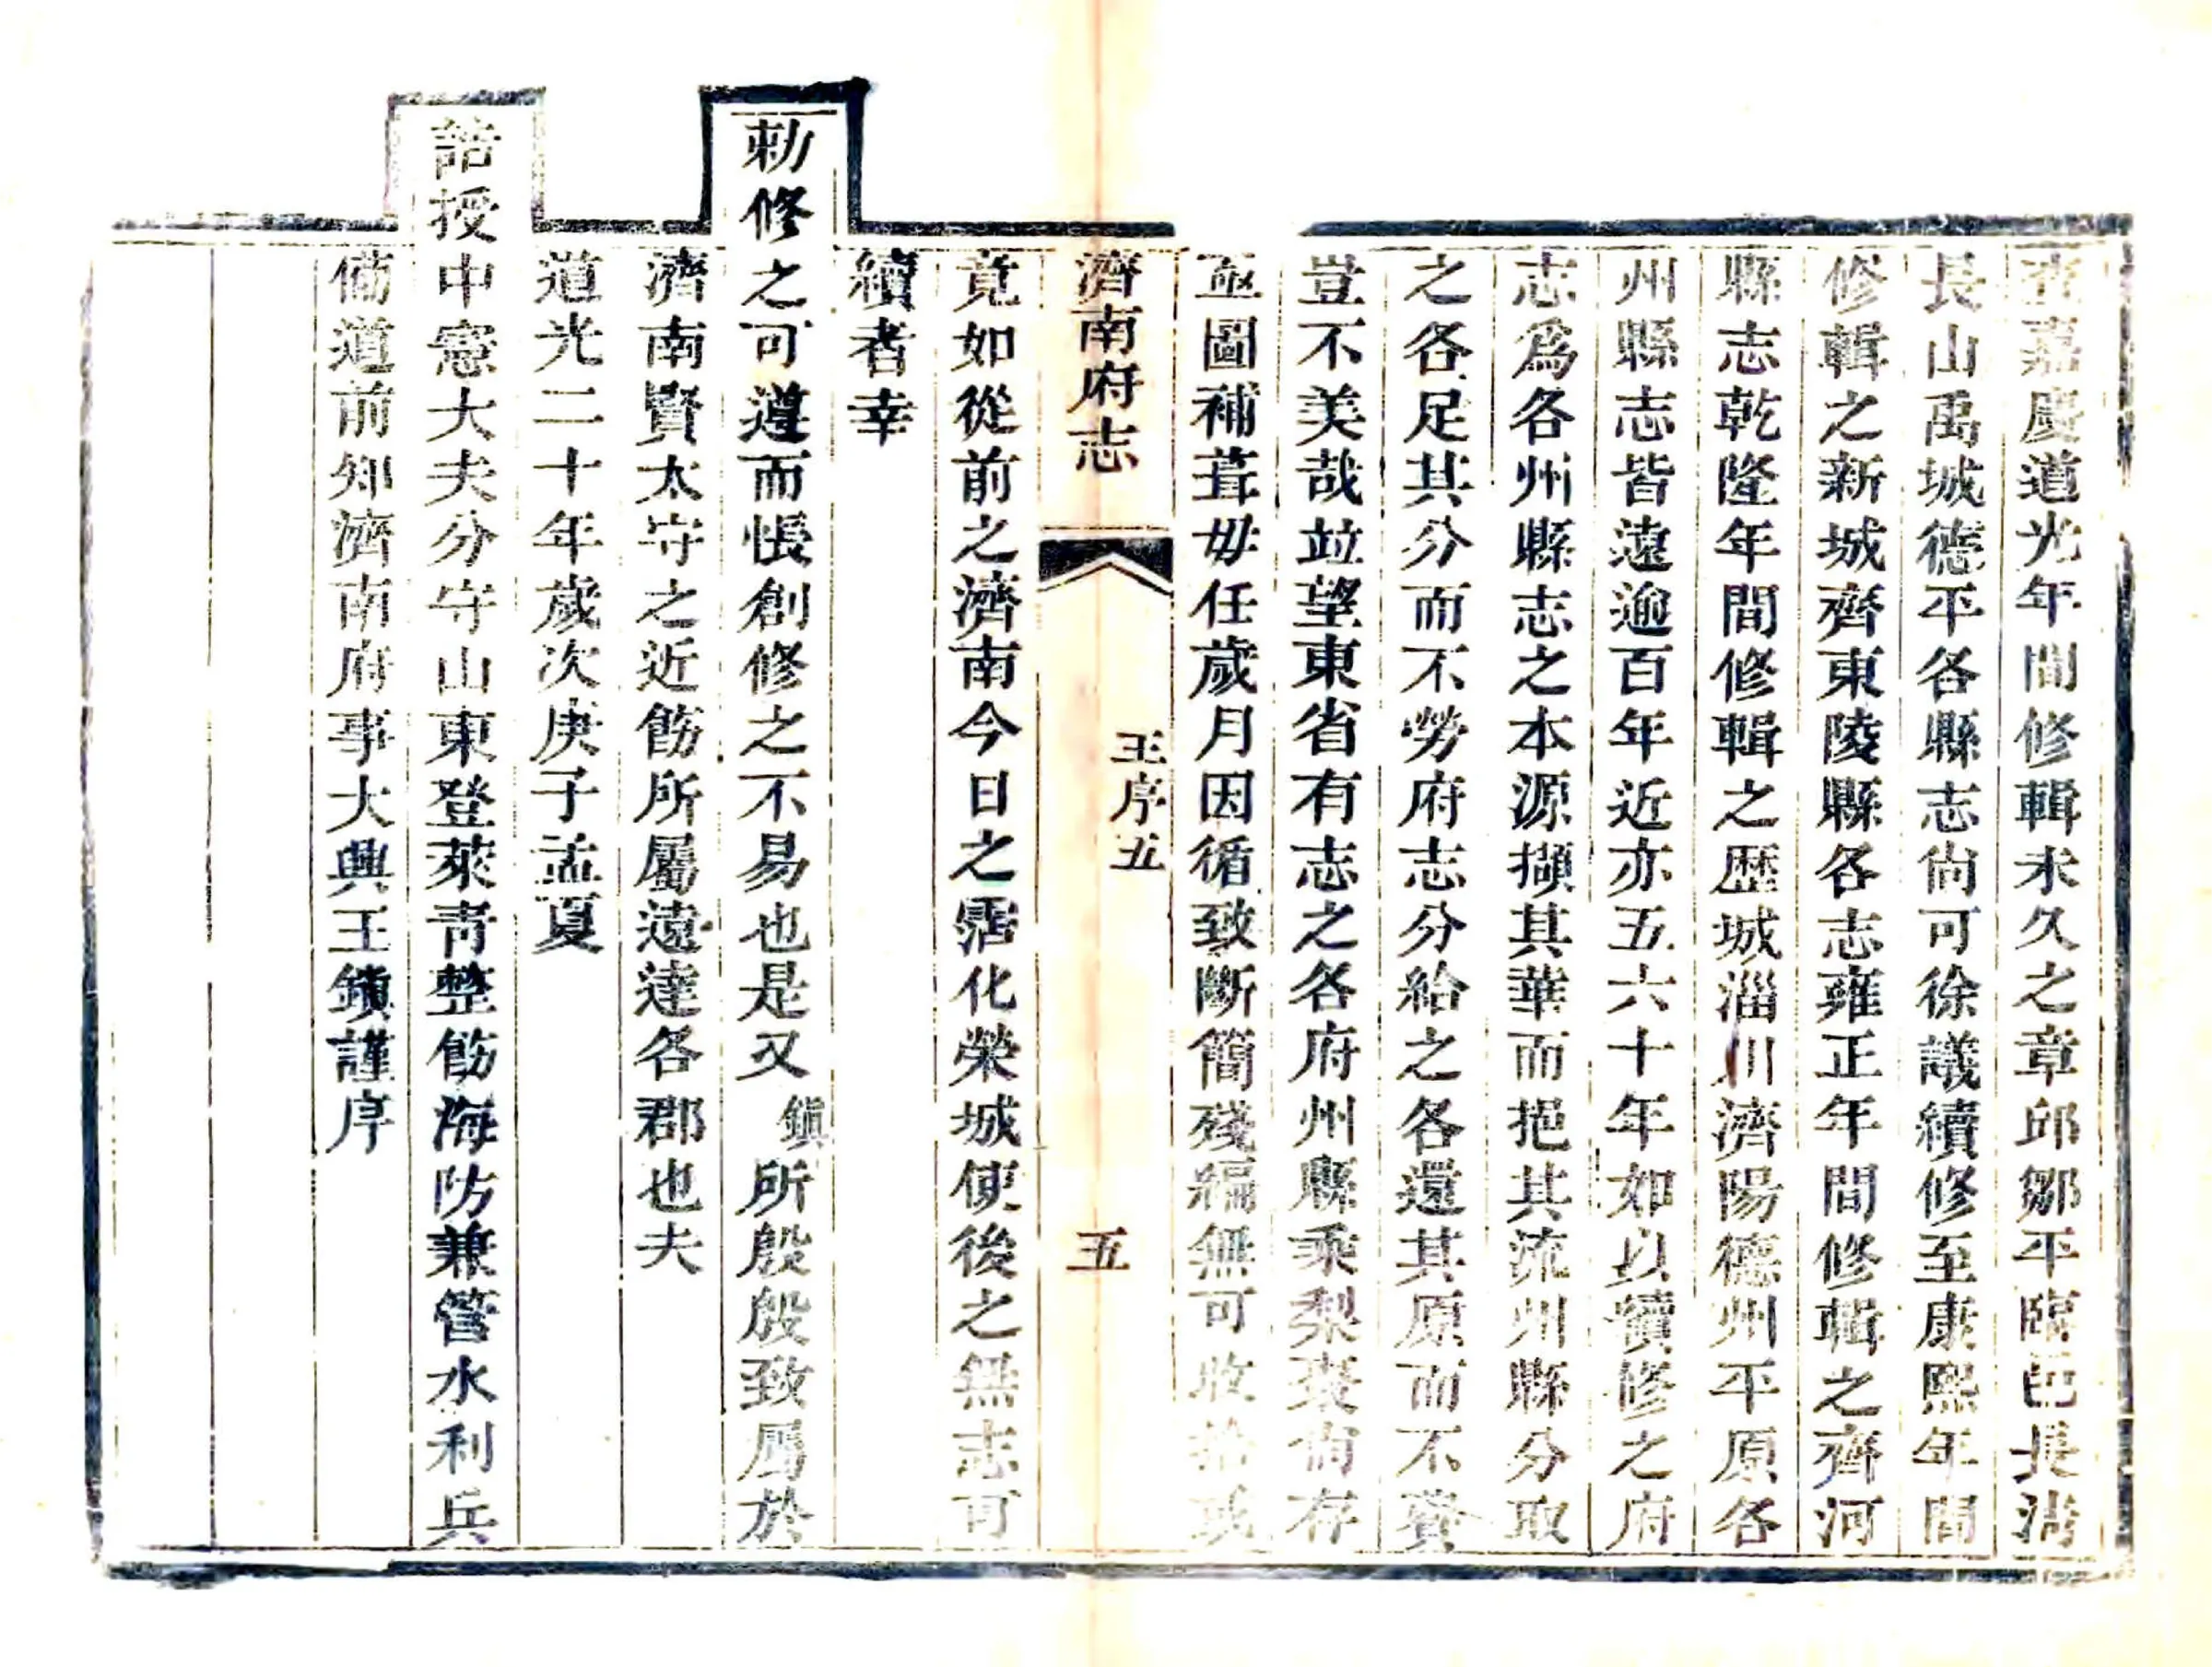 查嘉慶道光年間修輯未久之章邱鄒平臨邑長淸
長山禹城德平各縣志尙可徐議續修至康熙年間
修輯之新城齊東陵縣各志雍正年間修輯之齊河
縣志乾隆年間修輯之歷城淄川濟陽德州平原各
州縣志皆遠逾百年近亦五六十年如以續修之府
志爲各州縣志之本源擷其華而挹其流州縣分取
之各足其分而不勞府志分給之各還其原而不費
豈不美哉竝望東省有志之各府州縣乘梨棗尙存
亟圖補葺毋任歲月因循致斷簡殘編無可收拾或
濟南府志
王序五
五
竟如從前之濟南今日之霑化榮城使後之無志可
續者幸
勅修之可遵而悵創修之不易也是又鎭所殷殷致屬於
濟南賢太守之近飭所屬遠達各郡也夫
道光二十年歲次庚子孟夏
誥授中憲大夫分守山東登萊靑整飭海防兼管水利兵
備道前知濟南府事大興王鎭謹序